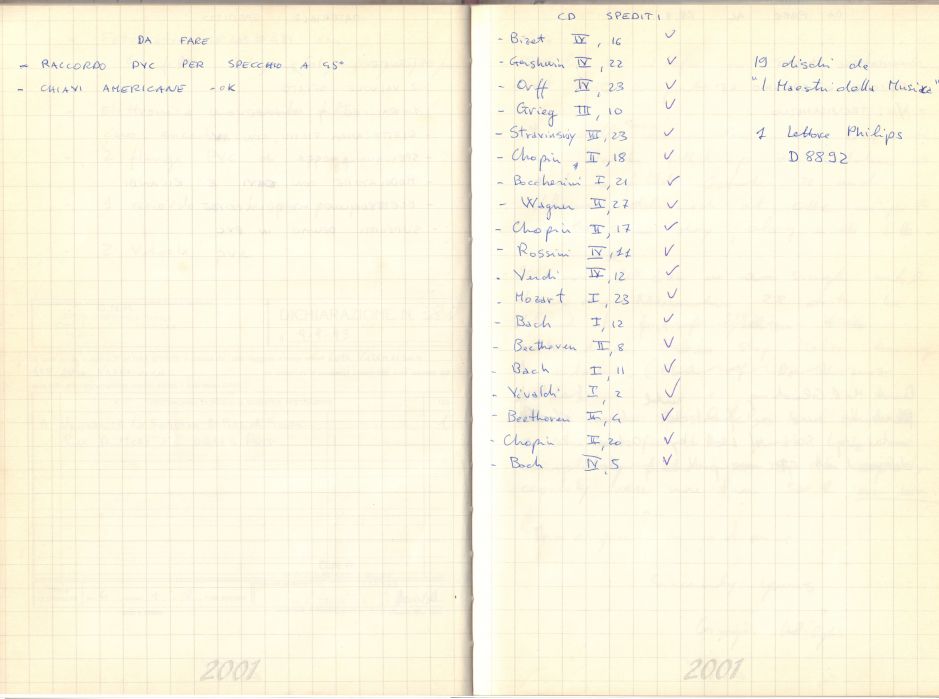 DA FARE
- RACCORDO PVC PER SPECCHIO A 45°
- CHIAVI AMERICANE - OK
2001
CD SPEDITI
- Bizet IV, 16 ✓
- Gershwin IV, 22 ✓
- Orff IV, 23 ✓
- Grieg III, 10 ✓
- Stravinsky III, 23 ✓
- Chopin II, 18 ✓
- Boccherini I, 21 ✓
- Wagner II, 27 ✓
- Chopin II, 17 ✓
- Rossini IV, 11 ✓
- Verdi IV, 12 ✓
- Mozart I, 23 ✓
- Bach I, 12 ✓
- Beethoven II, 8 ✓
- Bach I, 11 ✓
- Vivaldi I, 2 ✓
- Beethoven II, 4 ✓
- Chopin II, 20 ✓
- Bach IV, 5 ✓
19 dischi de
"I Maestri della Musica"
1 Lettore Philips
D8892
2001